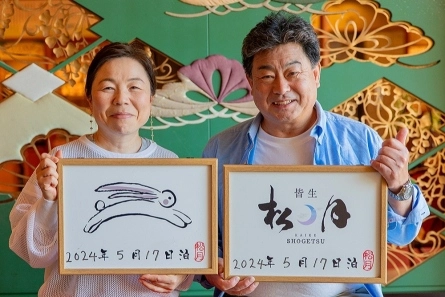 2024年5月17日泊
松月
皆生
松月
KAIKE
SHOGETSU
2024年5月17日泊
松月